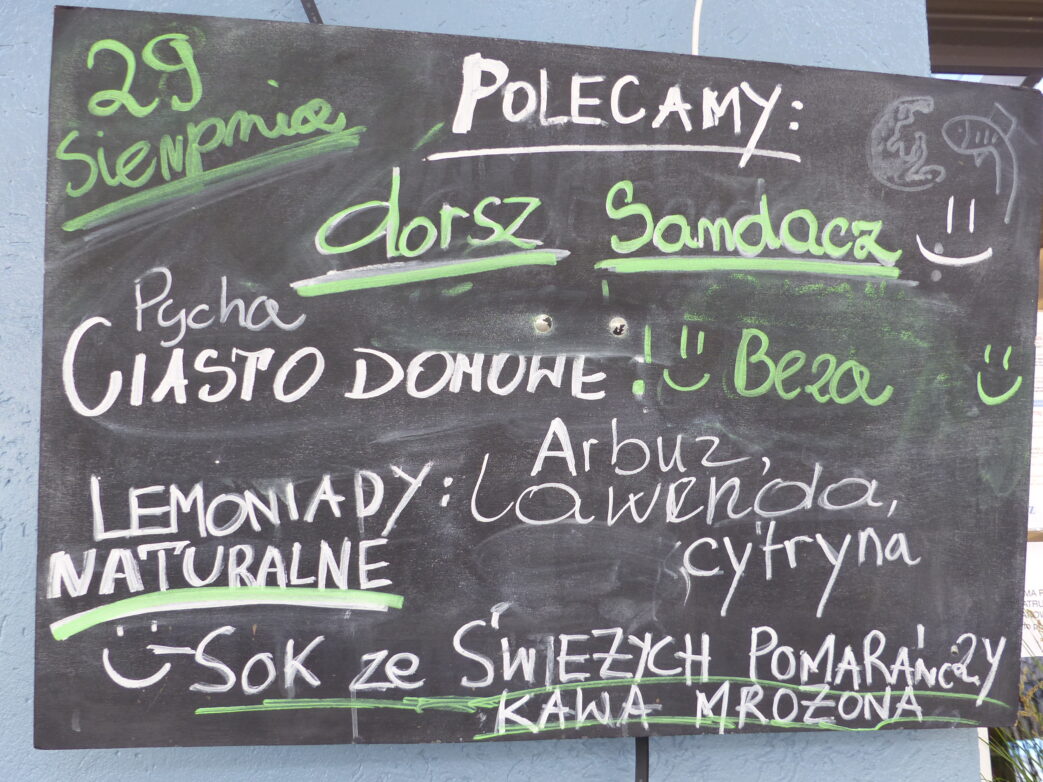 29
Sierpnia
POLECAMY:
dorsz Sandacz
Pycha
CIASTO DOMOWE! Beza
Arbuz,
LEMONIADY: Lawenda,
NATURALNE cytryna
SOK ze ŚWIEŻYCH POMARAŃCZY
KAWA MROŻONA